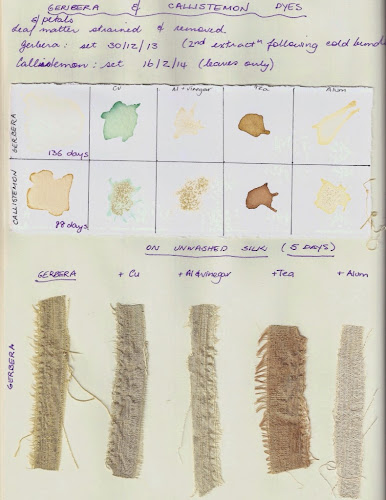 GERBERA & CALLISTEMON DYES
& petals
Leaf matter strained & removed
Gerbera : set 30/12/13 (2nd extractn following cold bundle
Callistemon : set 16/2/14 (leaves only)
Cu Al + vinegar Tea Alum
GERBERA
136 days
CALLISTEMON
88 days
ON UNWASHED SILK (5 DAYS)
GERBERA + Cu + Al & vinegar + Tea + Alum
GERBERA